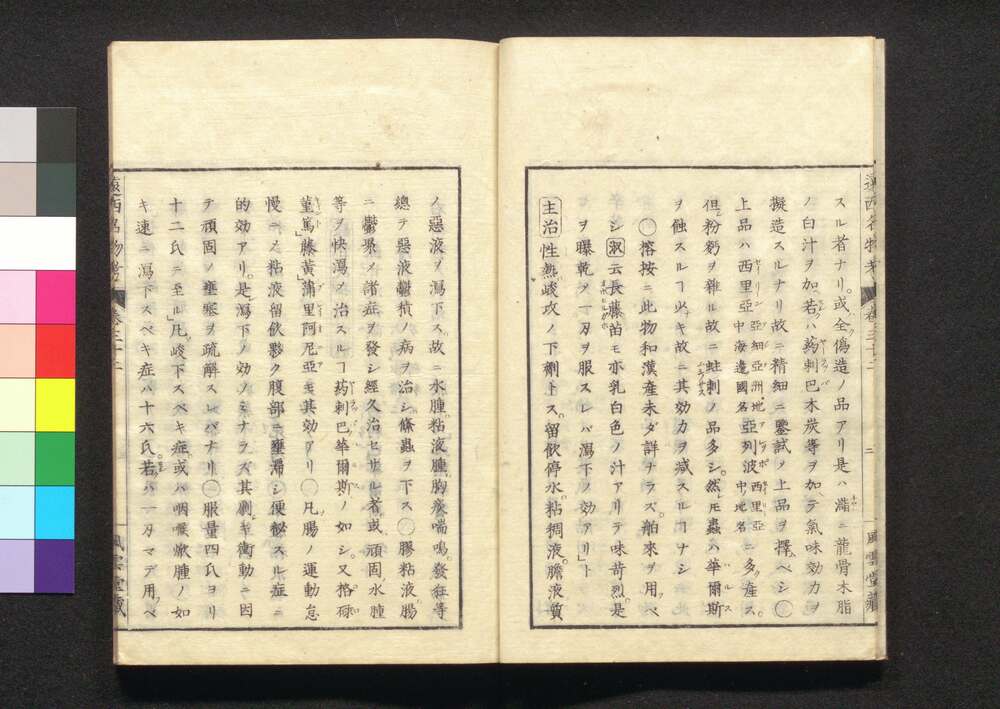 遠西名物考 卷三十二 二 風雲堂藏
スル者ナリ。或ハ全ク偽造ノ品アリ是ハ瀝ニ龍骨木脂
ノ白汁ヲ加若クハ葯剌巴木炭等ヲ加テ氣味効力ヲ
擬造スルナリ故ニ精細ニ鑒試ヲ上品ヲ擇ベシ〇
上品ハ西里亞 亞細亞洲地中海邊國名 亞列波 西里亞中ノ地名 ニ多ク産ス。
但粉麪ヲ雜ル故ニ蛀刺ノ品多シ。然レ𪜈蟲ハ華爾斯
ヲ蝕スルヿ少キ故ニ其効力ヲ減スルヿナシ
〇榕按ニ此物和漢産未ダ詳ナラズ。舶來ヲ用ベ
シ 淑云長藤苗モ亦乳白色ノ汁アリテ味苛烈。是
ヲ曝乾メ一刃ヲ服スレバ瀉下ノ効アリ」ト
主治 性熱峻攻ノ下劑トス。留飲停水。粘稠液。膽液質
ノ惡液ヲ瀉下ス。故ニ水腫。粘液腫。胸痰喘鳴。發狂等
總テ惡液鬱積ノ病ヲ治シ。蟲ヲ下ス〇膠粘液腸
ニ鬱累メ諸症ヲ發シ經久治セザル者。或ハ頑固ノ水腫
等ヲ快瀉メ治スルヿ葯剌巴華爾斯ノ如シ。又格碌
菫篤。藤黄。蒲里阿尼亞モ其効アリ〇凡腸ノ運動怠
慢ニメ粘液留飲夥ク腹部ニ壅滯シ便秘スル症ニ
的効アリ。是レ瀉下ノ効ノミナラズ其劇キ衝動ニ因
テ頑固ノ壅塞ヲ疏解スレバナリ〇服量四氏ヨリ
十二氏ニ至ル」凡峻下スベキ症或ハ咽喉焮腫ノ如
キ速ニ瀉下スベキ症ハ十六氏。若クハ一刃マデ用ベ
遠西名物考 卷三十二 風雲堂藏